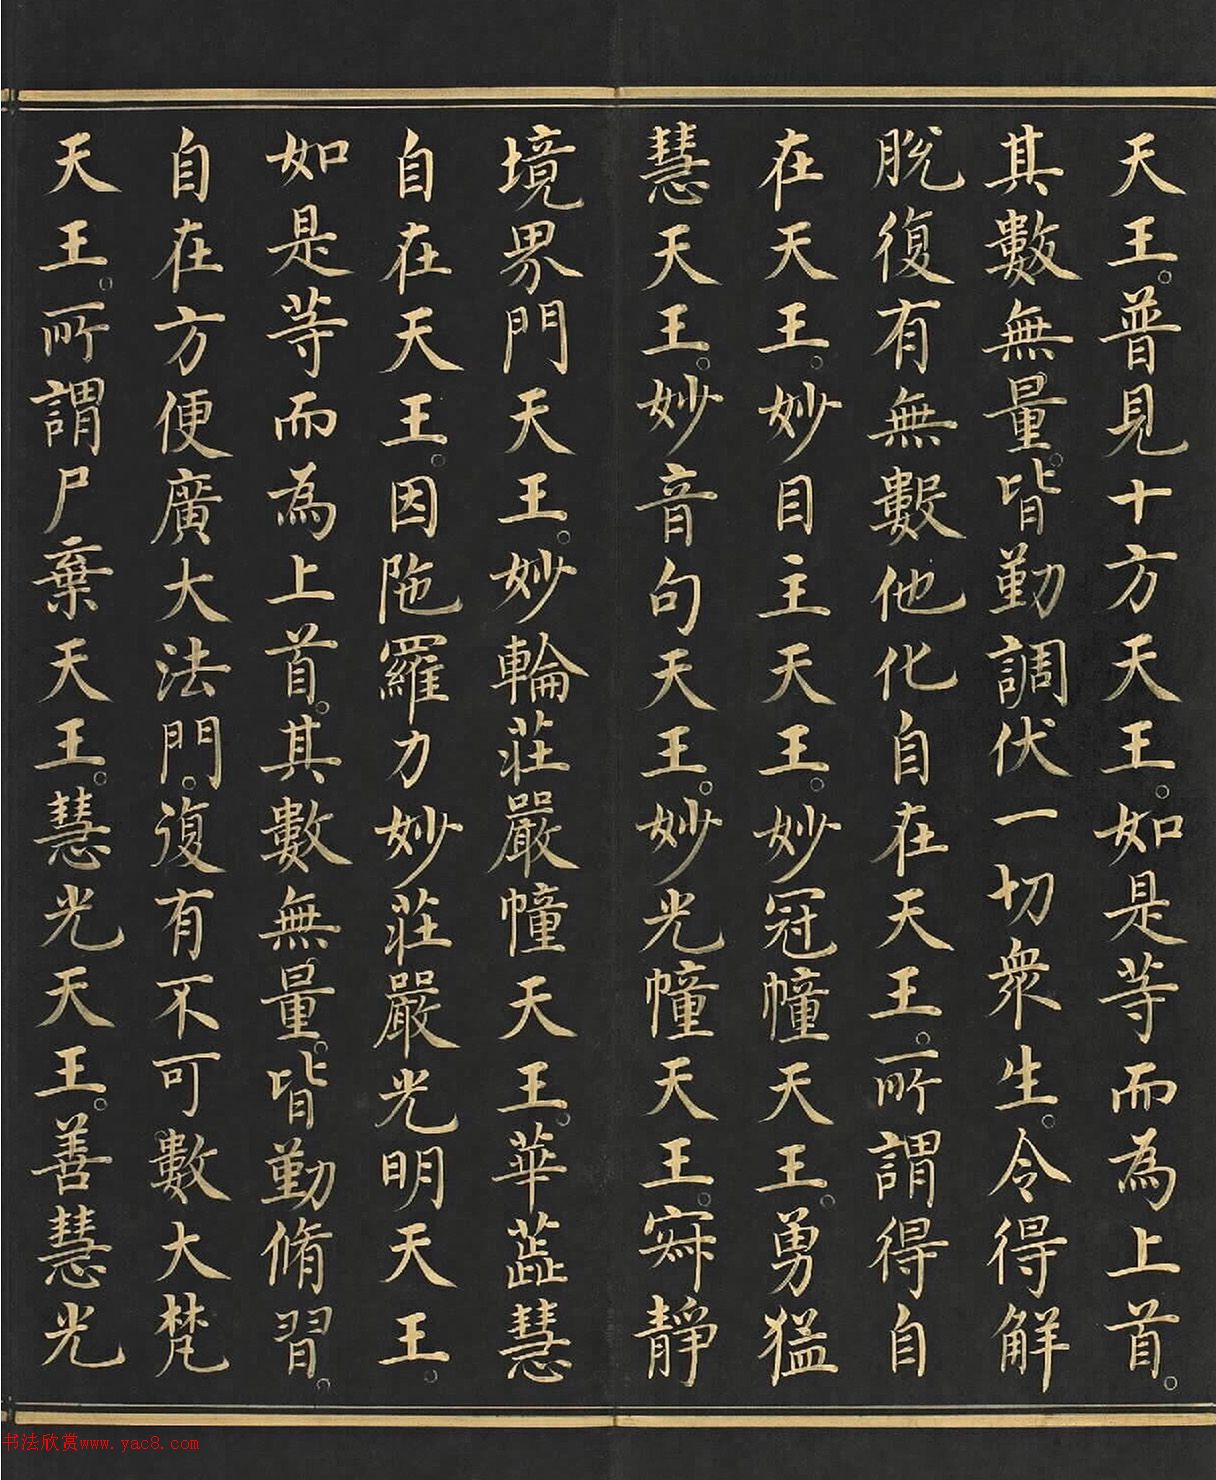 天王。普見十方天王。如是等而為上首。
其數無量。皆勤調伏一切眾生。令得解
脫復有無數他化自在天王。所謂得自
在天王。妙目主天王。妙冠幢天王。勇猛
慧天王。妙音句天王。妙光幢天王。寂靜
境界門天王。妙輪莊嚴幢天王。華蘂慧
自在天王。因陁羅力妙莊嚴光明天王。
如是等而為上首。其數無量。皆勤脩習。
自在方便廣大法門。復有不可數大梵
天王。所謂尸棄天王。慧光天王。善慧光
书法欣赏www.yac8.com